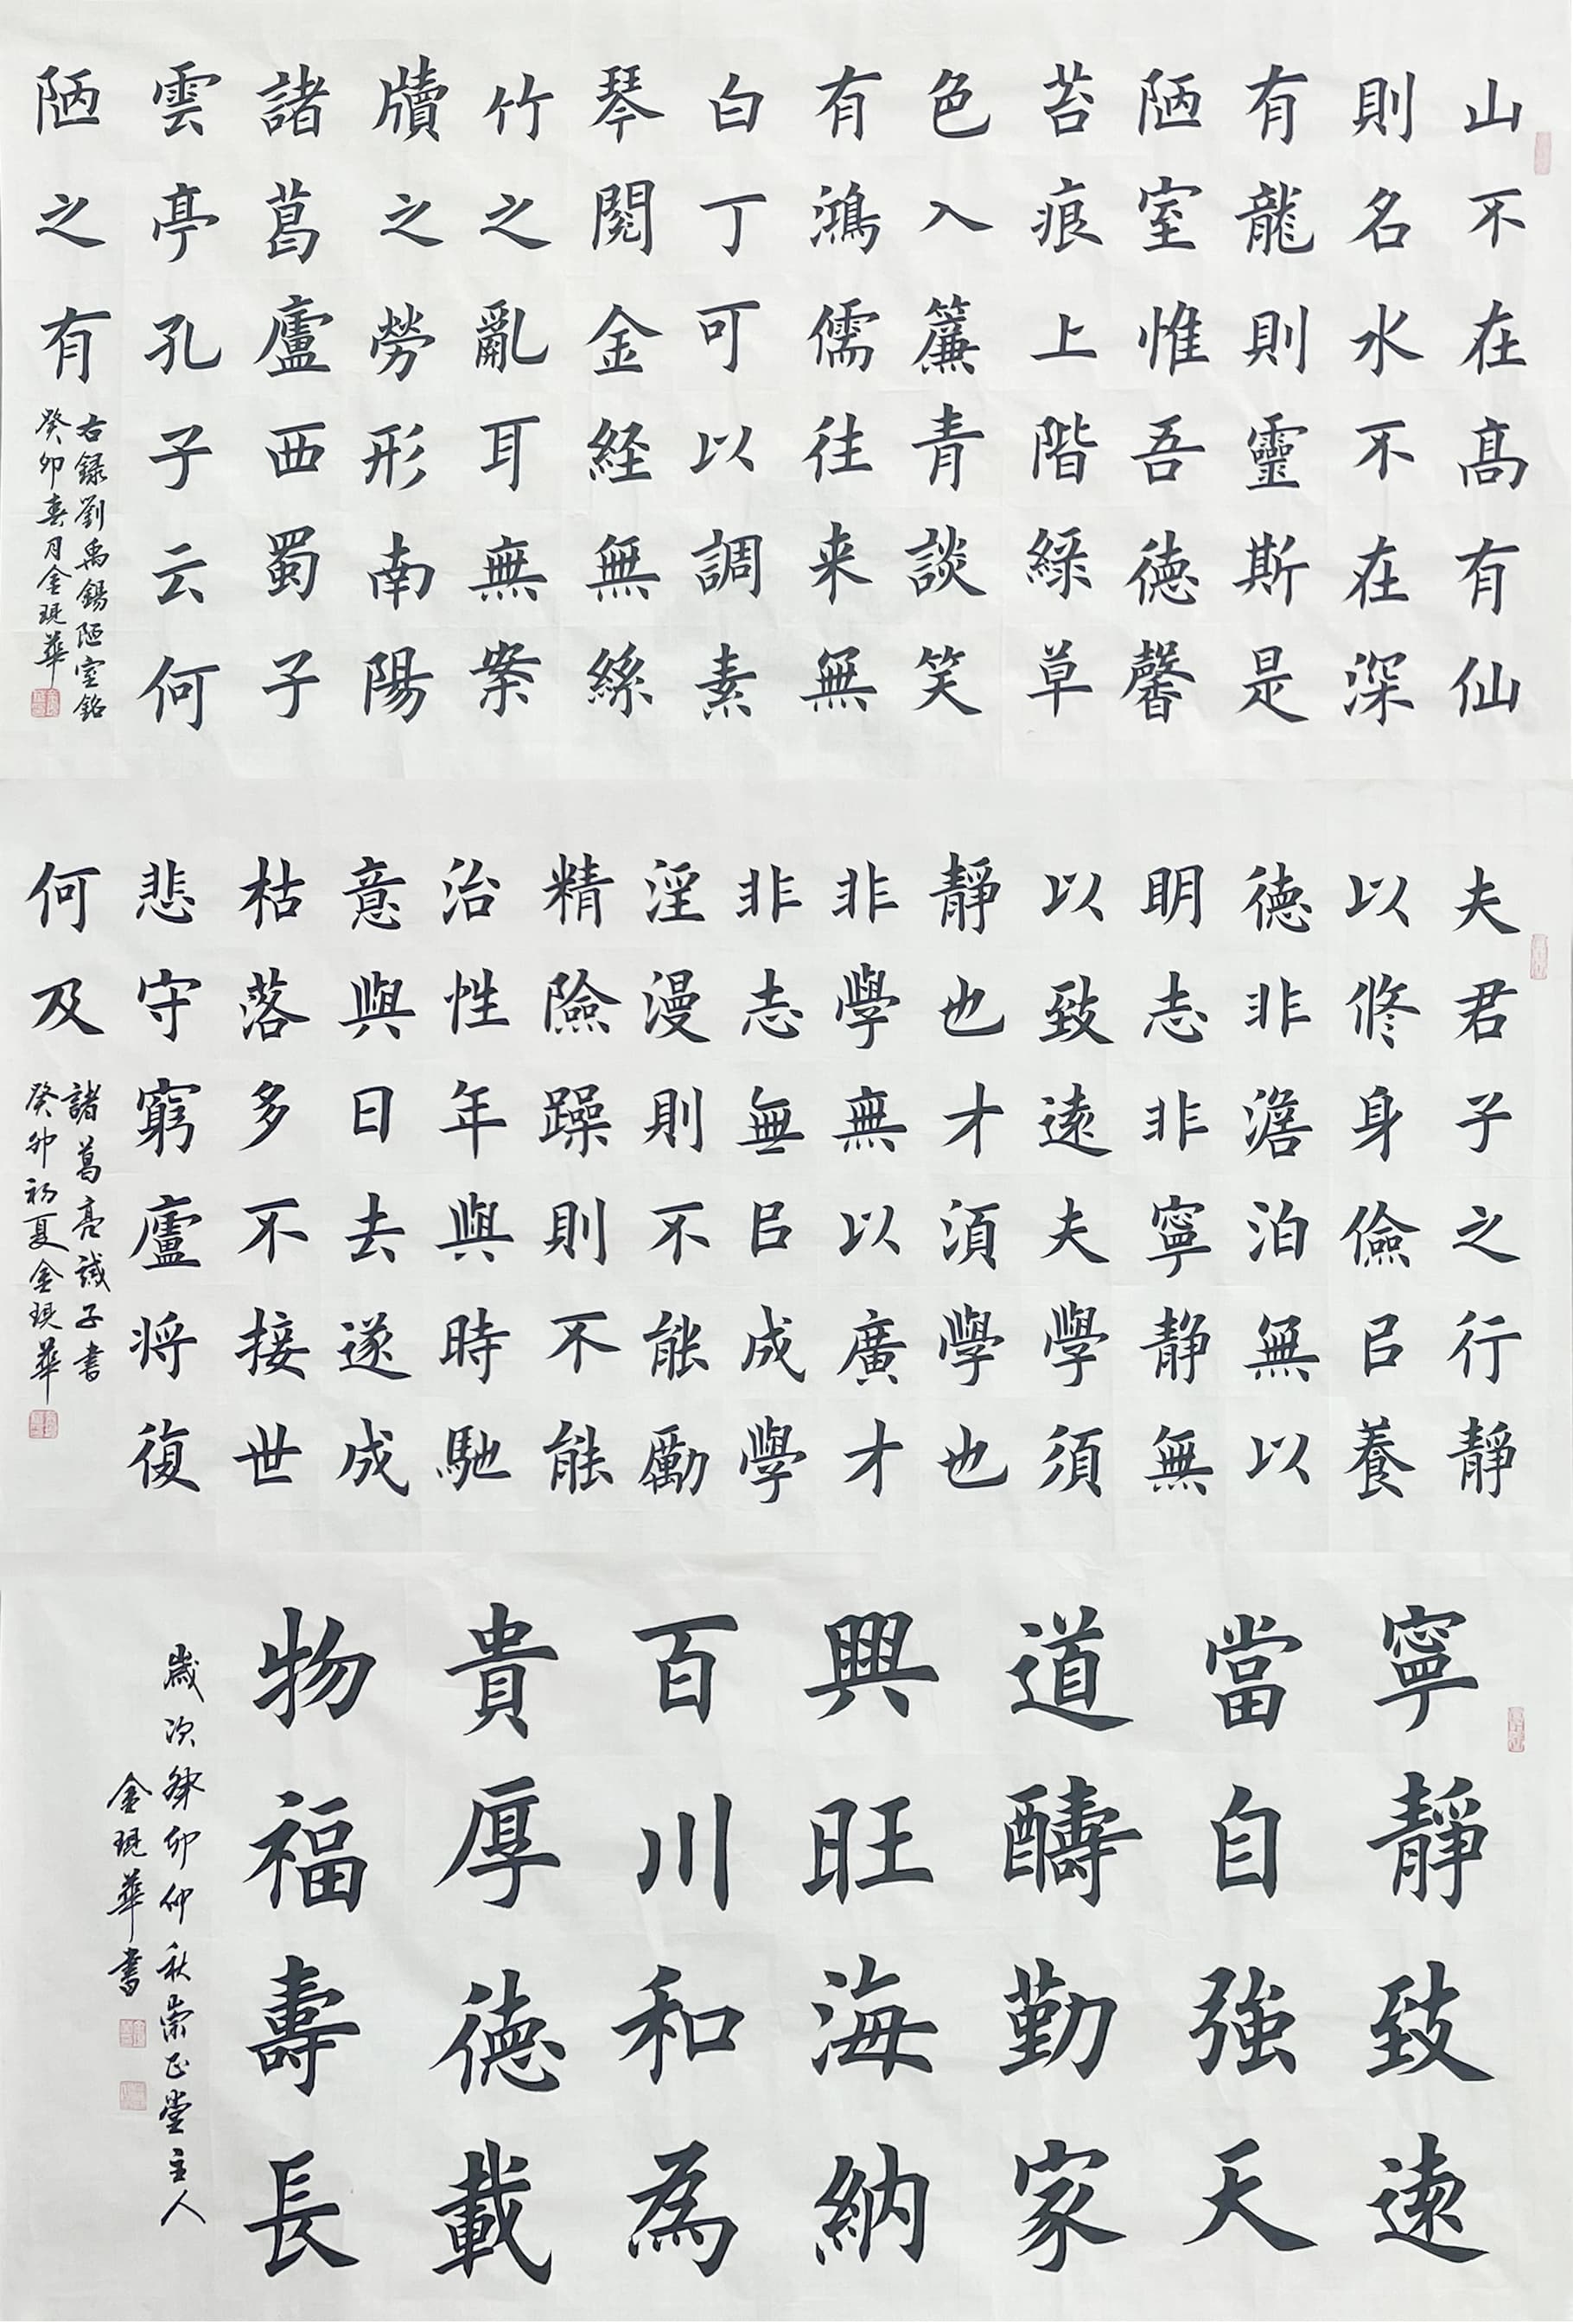 山不在高有仙
則名水不在深
有龍則靈斯是
陋室惟吾德馨
苔痕上階緑草
色入簾青談笑
有鴻儒往来無
白丁可以調素
琴閱金経無絲
竹之亂耳無案
牘之勞形南陽
諸葛廬西蜀子
雲亭孔子云何
陋之有
右録劉禹錫陋室銘
癸卯春月金琨華
夫君子之行靜
以修身儉㠯養
德非澹泊無以
明志非寧静無
以致遠夫學須
靜也才須學也
非學無以廣才
非志無㠯成學
淫漫則不能勵
精險躁則不能
治性年與時馳
意與日去遂成
枯落多不接世
悲守窮廬将復
何及
諸葛亮誡子書
癸卯初夏金琨華
寧靜致遠
當自強天
道醻勤家
興旺海納
百川和為
貴厚德載
物福壽長
歲次癸卯仲秋崇正堂主人
金琨華書